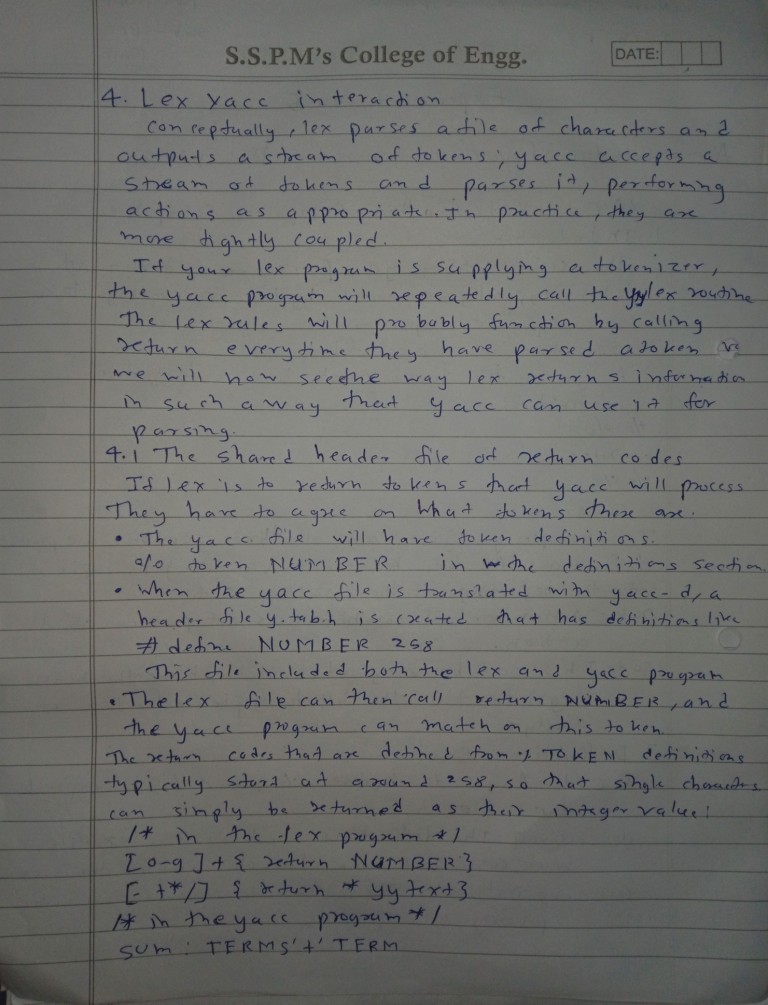 S.S.P.M's College of Engg.
DATE:
4. Lex Yacc interaction
Conceptually, lex parses a file of characters and
outputs a stream of tokens; yacc accepts a
stream of tokens and parses it, performing
actions as appropriate. In practice, they are
more tightly coupled.
If your lex program is supplying a tokenizer,
the yacc program will repeatedly call the yylex routine
The lex rules will probably function by calling
return everytime they have parsed a token
we will now see the way lex returns information
in such a way that yacc can use it for
parsing.
4.1 The shared header file of return codes
If lex is to return tokens that yacc will process
They have to agree on what tokens there are.
• The yacc file will have token definitions.
% token NUMBER in the definitions section.
• when the yacc file is translated with yacc-d, a
header file y.tab.h is created that has definitions like
# define NUMBER 258
This file included both the lex and yacc program
• The lex file can then call return NUMBER, and
the yacc program can match on this token
The return codes that are defined from % TOKEN definitions
typically start at around 258, so that single characters
can simply be returned as their integer value:
/* in the lex program */
[0-9]+{ return NUMBER}
[-+*/] { return * yytext}
/* in the yacc program */
sum : TERMS '+' TERM